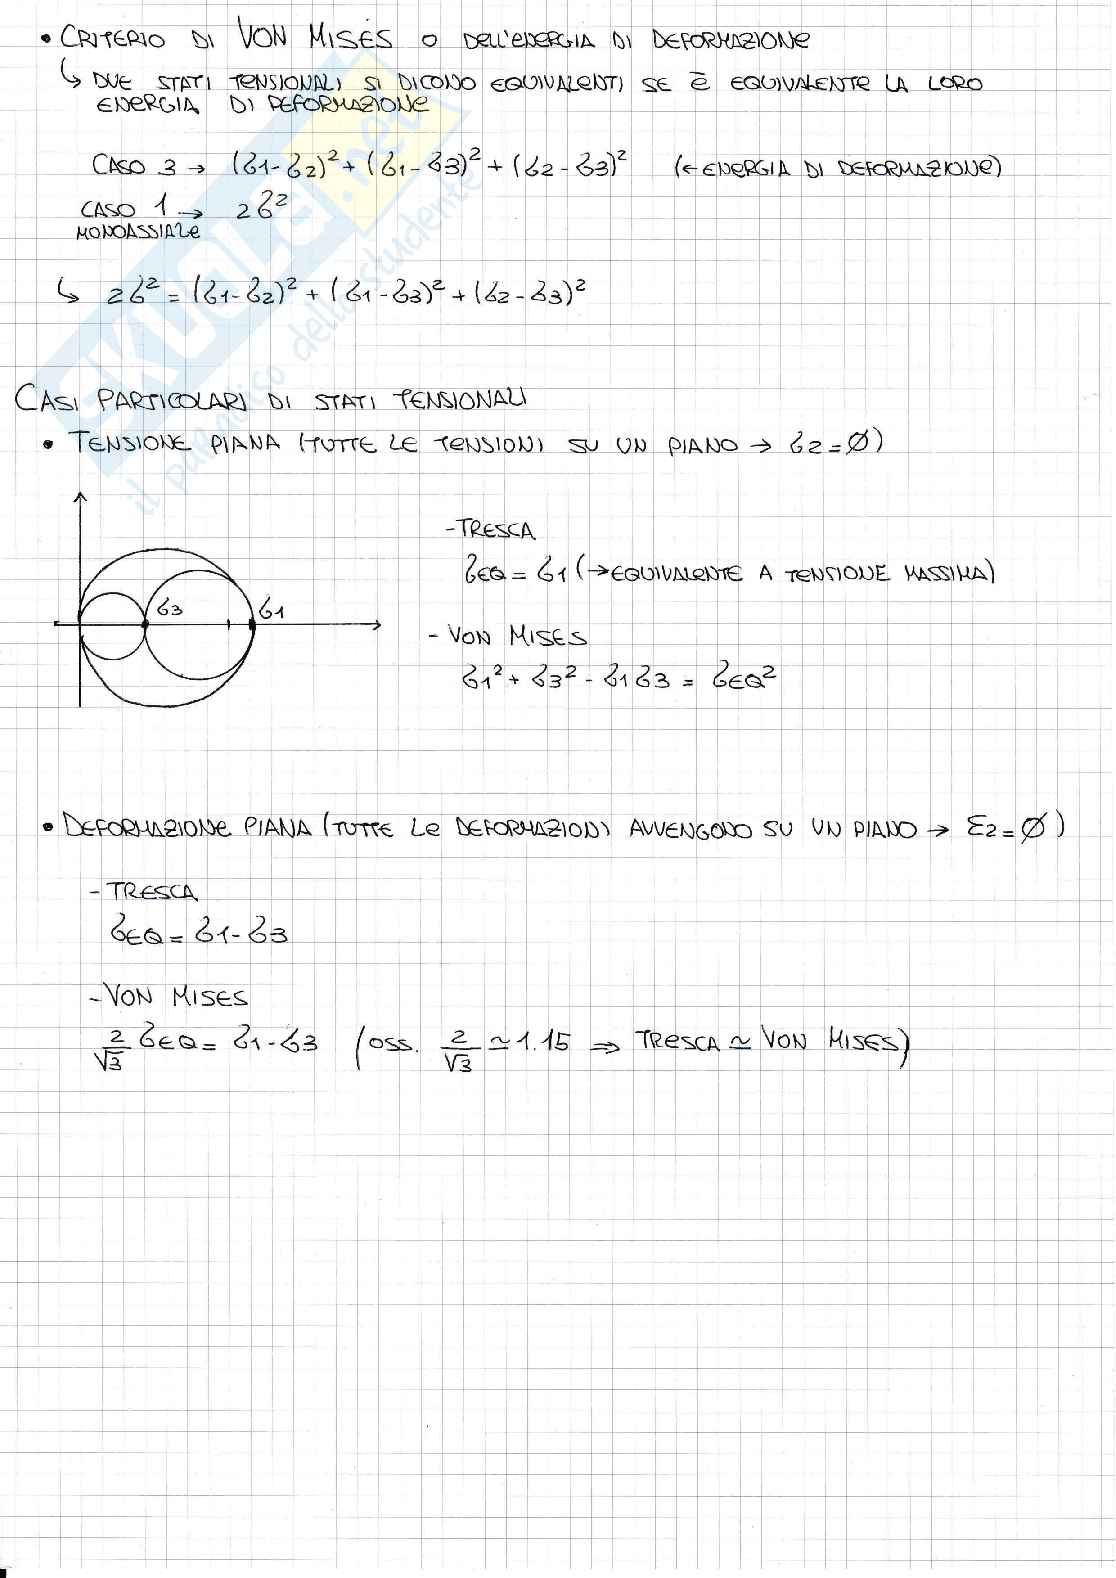 • CRITERIO DI VON MISES O DELL'ENERGIA DI DEFORMAZIONE
↳ DUE STATI TENSIONALI SI DICONO EQUIVALENTI SE È EQUIVALENTE LA LORO
ENERGIA DI DEFORMAZIONE
CASO 3 → (σ1-σ2)² + (σ1-σ3)² + (σ2-σ3)² (← ENERGIA DI DEFORMAZIONE)
CASO 1 → 2σ²
MONOASSIALE
↳ 2σ² = (σ1-σ2)² + (σ1-σ3)² + (σ2-σ3)²
SKUOLA.net
il paradiso dello studente
CASI PARTICOLARI DI STATI TENSIONALI
• TENSIONE PIANA (TUTTE LE TENSIONI SU UN PIANO → σ2=Ø)
- TRESCA
σEQ = σ1 (→ EQUIVALENTE A TENSIONE MASSIMA)
σ3 σ1
- VON MISES
σ1² + σ3² - σ1σ3 = σEQ²
• DEFORMAZIONE PIANA (TUTTE LE DEFORMAZIONI AVVENGONO SU UN PIANO → Ɛ2=Ø)
- TRESCA
σEQ = σ1-σ3
- VON MISES
2/√3 σEQ = σ1-σ3 (OSS. 2/√3 ≃ 1.15 ⇒ TRESCA ≃ VON MISES)